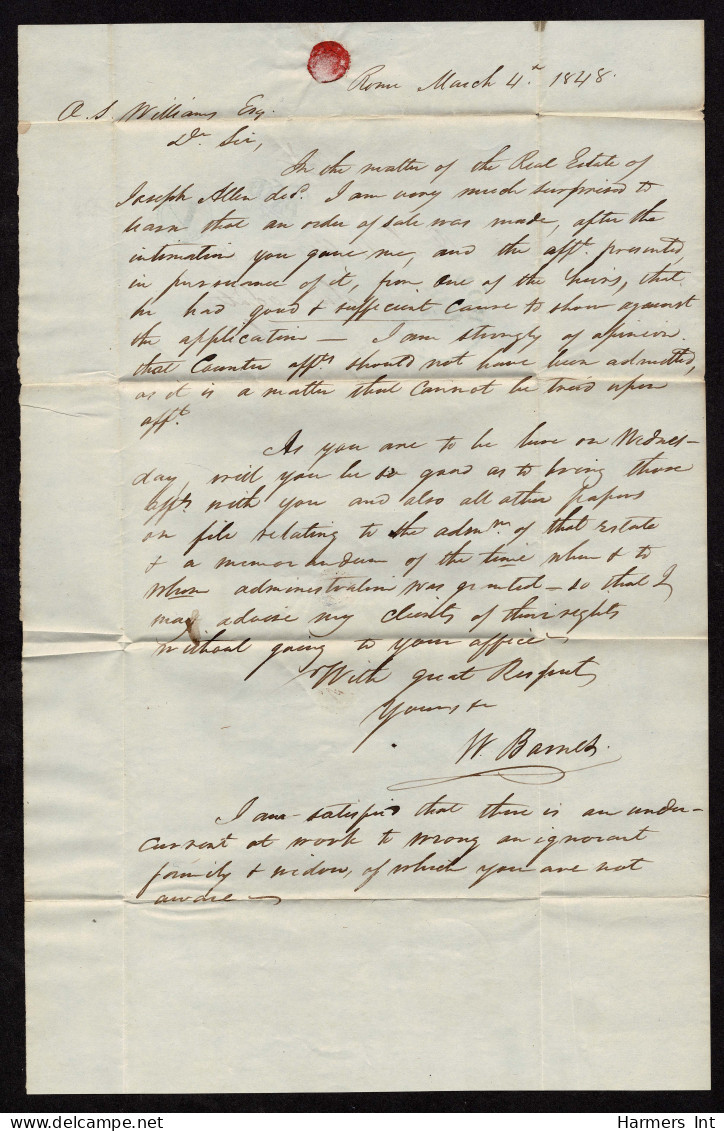 Rome March 4th 1848.
O. S. Williams Esq.
Dr Sir,
In the matter of the Real Estate of
Joseph Allen decd. I am very much surprised to
learn that an order of sale was made, after the
intimation you gave me, and the afft. presented
in pursuance of it, from one of the heirs, that
he had good & sufficient cause to show against
the application — I am strongly of opinion
that Counter affts should not have been admitted,
as it is a matter that cannot be tried upon
afft.
As you are to be here on Wednes-
day, will you be so good as to bring those
affts with you and also all other papers
on file relating to the admn. of that Estate
& a memorandum of the time when & to
whom administration was granted — so that I
may advise my clients of their rights
without going to your office
With great Respect
Yours &c
W. Barnes.
I am satisfied that there is an under-
current at work to wrong an ignorant
family & widow, of which you are not
aware —
Harmers Int